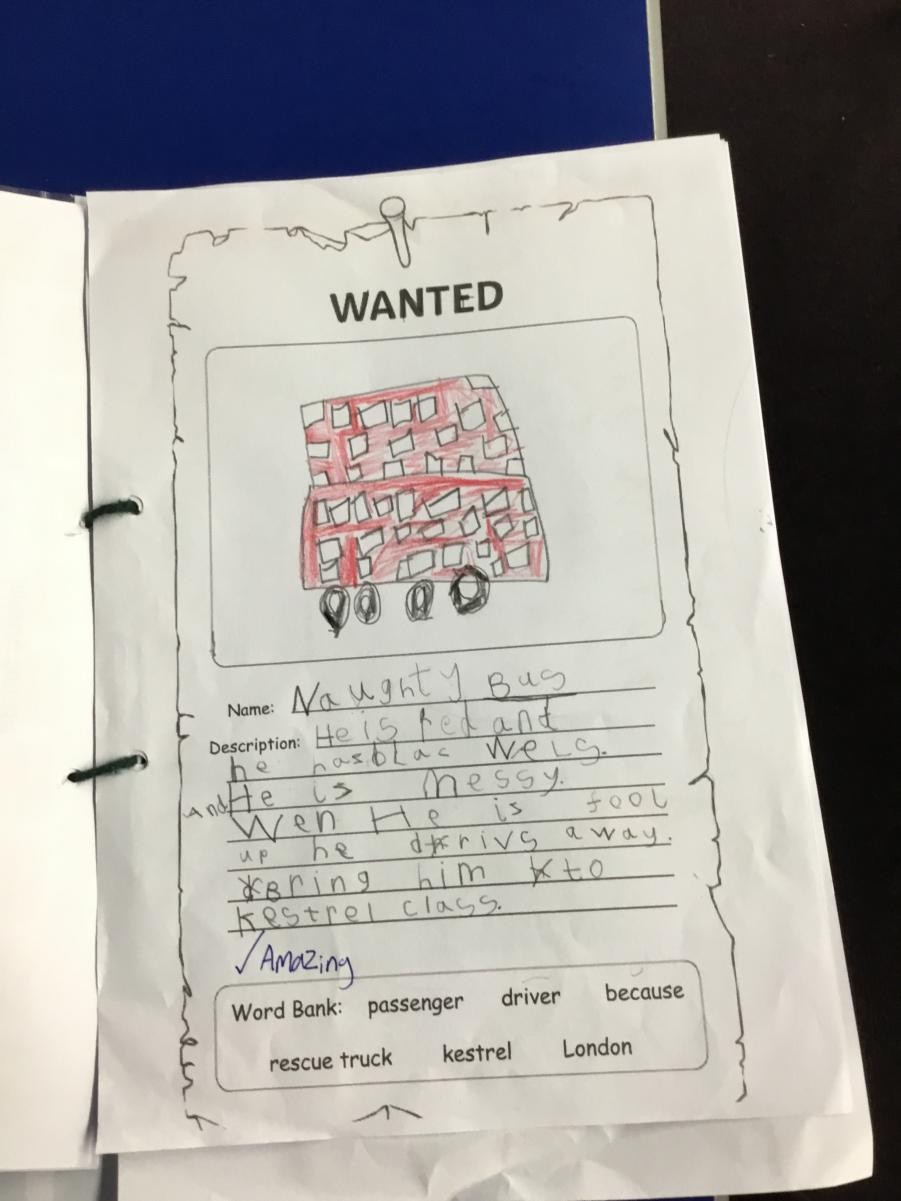 WANTED
Name: Naughty Bus
Description: He is red and
he hasblac wels.
and He is messy.
Wen He is fool
up he drivs away.
Bring him to
kestrel class.
✓ Amazing
Word Bank: passenger driver because
rescue truck kestrel London